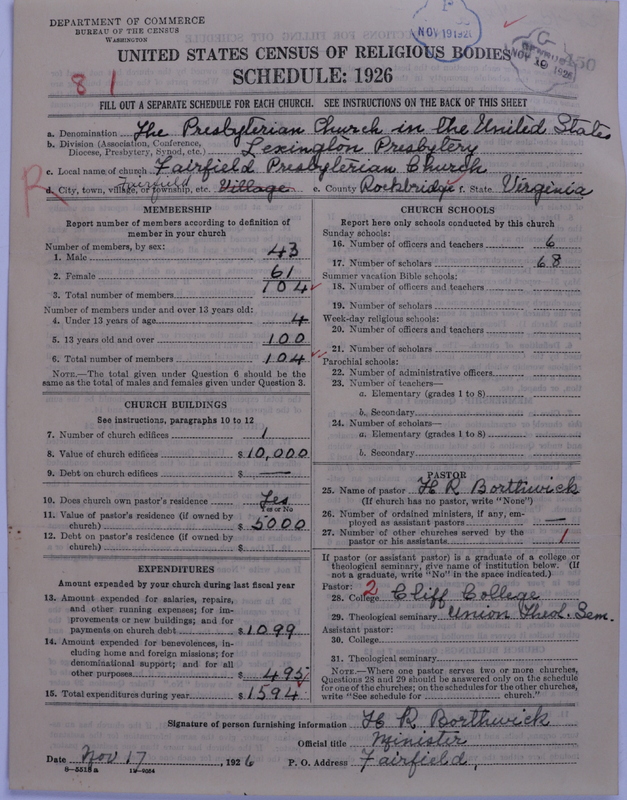 DEPARTMENT OF COMMERCE
BUREAU OF THE CENSUS
WASHINGTON
NOV 19 1926
NOV 19 1926
8 1
UNITED STATES CENSUS OF RELIGIOUS BODIES
SCHEDULE: 1926
FILL OUT A SEPARATE SCHEDULE FOR EACH CHURCH. SEE INSTRUCTIONS ON THE BACK OF THIS SHEET
a. Denomination The Presbyterian Church in the United States
b. Division (Association, Conference, Diocese, Presbytery, Synod, etc.) Lexington Presbytery
c. Local name of church Fairfield Presbyterian Church
R
d. City, town, village, or township, etc. Fairfield Village e. County Rockbridge f. State Virginia
MEMBERSHIP
Report number of members according to definition of
member in your church
Number of members, by sex:
1. Male 43
2. Female 61
3. Total number of members 104
Number of members under and over 13 years old:
4. Under 13 years of age 4
5. 13 years old and over 100
6. Total number of members 104
NOTE.—The total given under Question 6 should be the
same as the total of males and females given under Question 3.
CHURCH BUILDINGS
See instructions, paragraphs 10 to 12
7. Number of church edifices 1
8. Value of church edifices $10,000
9. Debt on church edifices $ —
10. Does church own pastor's residence Yes
Yes or No
11. Value of pastor's residence (if owned by
church) $5000
12. Debt on pastor's residence (if owned by
church) $
EXPENDITURES
Amount expended by your church during last fiscal year
13. Amount expended for salaries, repairs,
and other running expenses; for im-
provements or new buildings; and for
payments on church debt $1099
14. Amount expended for benevolences, in-
cluding home and foreign missions; for
denominational support; and for all
other purposes $ 495
15. Total expenditures during year $1594
CHURCH SCHOOLS
Report here only schools conducted by this church
Sunday schools:
16. Number of officers and teachers 6
17. Number of scholars 68
Summer vacation Bible schools:
18. Number of officers and teachers
19. Number of scholars
Week-day religious schools:
20. Number of officers and teachers
21. Number of scholars
Parochial schools:
22. Number of administrative officers
23. Number of teachers—
a. Elementary (grades 1 to 8)
b. Secondary
24. Number of scholars—
a. Elementary (grades 1 to 8)
b. Secondary
PASTOR
25. Name of pastor H R Borthwick
(If church has no pastor, write "None")
26. Number of ordained ministers, if any, em-
ployed as assistant pastors —
27. Number of other churches served by the
pastor or his assistants 1
If pastor (or assistant pastor) is a graduate of a college or
theological seminary, give name of institution below. (If
not a graduate, write "No" in the space indicated.)
Pastor: 2
28. College Cliff College
29. Theological seminary Union Theol. Sem.
Assistant pastor:
30. College
31. Theological seminary
NOTE.—Where one pastor serves two or more churches,
Questions 28 and 29 should be answered only on the schedule
for one of the churches; on the schedules for the other churches,
write "See schedule for church."
Signature of person furnishing information H R Borthwick
Official title Minister
Date Nov 17, 1926 P. O. Address Fairfield,
8-5518a